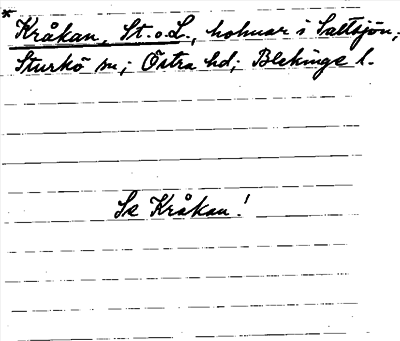 * Kråkan, St. o. L., holmar i Saltsjön;
Sturkö sn; Östra hd; Blekinge l.
Se Kråkan!